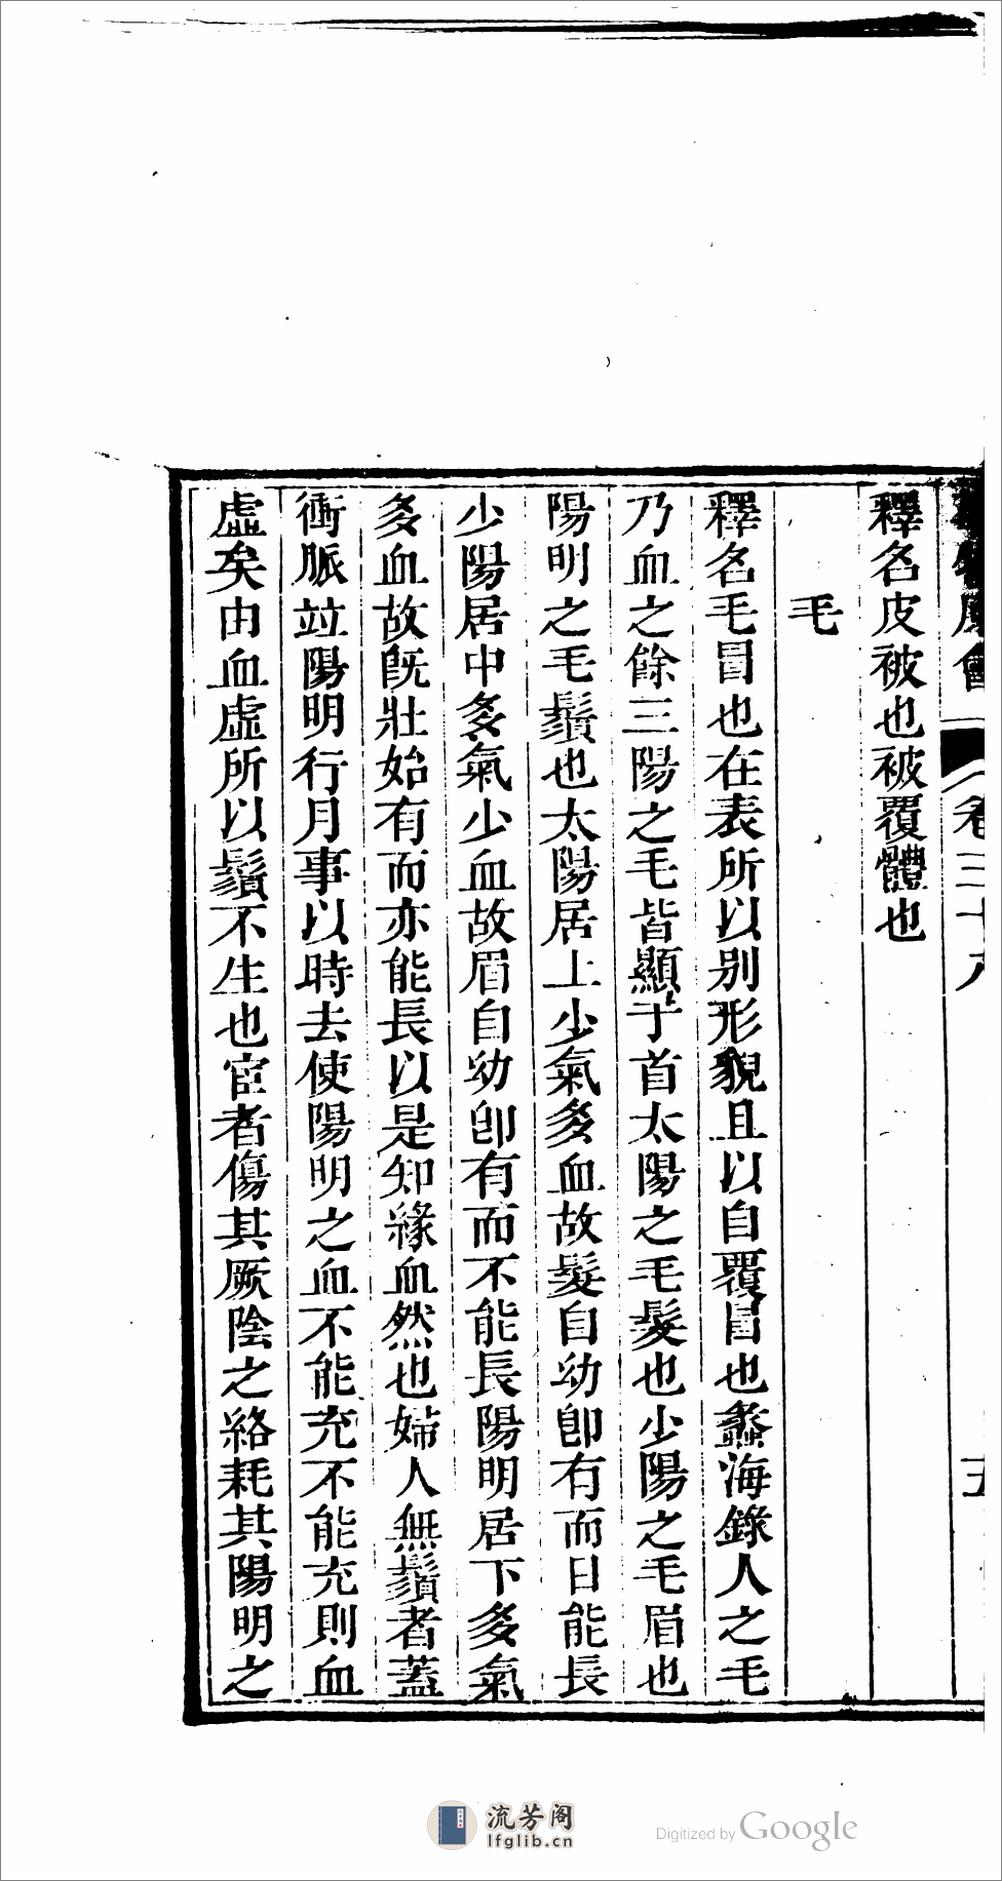 卷三十八
五
釋名皮被也被覆體也
毛
釋名毛冒也在表所以别形貌且以自覆冒也蠡海錄人之毛
乃血之餘三陽之毛皆顯于首太陽之毛髮也少陽之毛眉也
陽明之毛鬚也太陽居上少氣多血故髮自幼卽有而日能長
少陽居中多氣少血故眉自幼卽有而不能長陽明居下多氣
多血故旣壯始有而亦能長以是知緣血然也婦人無鬚者蓋
衝脈竝陽明行月事以時去使陽明之血不能充不能充則血
虛矣由血虛所以鬚不生也宦者傷其厥陰之絡耗其陽明之
流芳阁
lfglib.cn
Digitized by Google